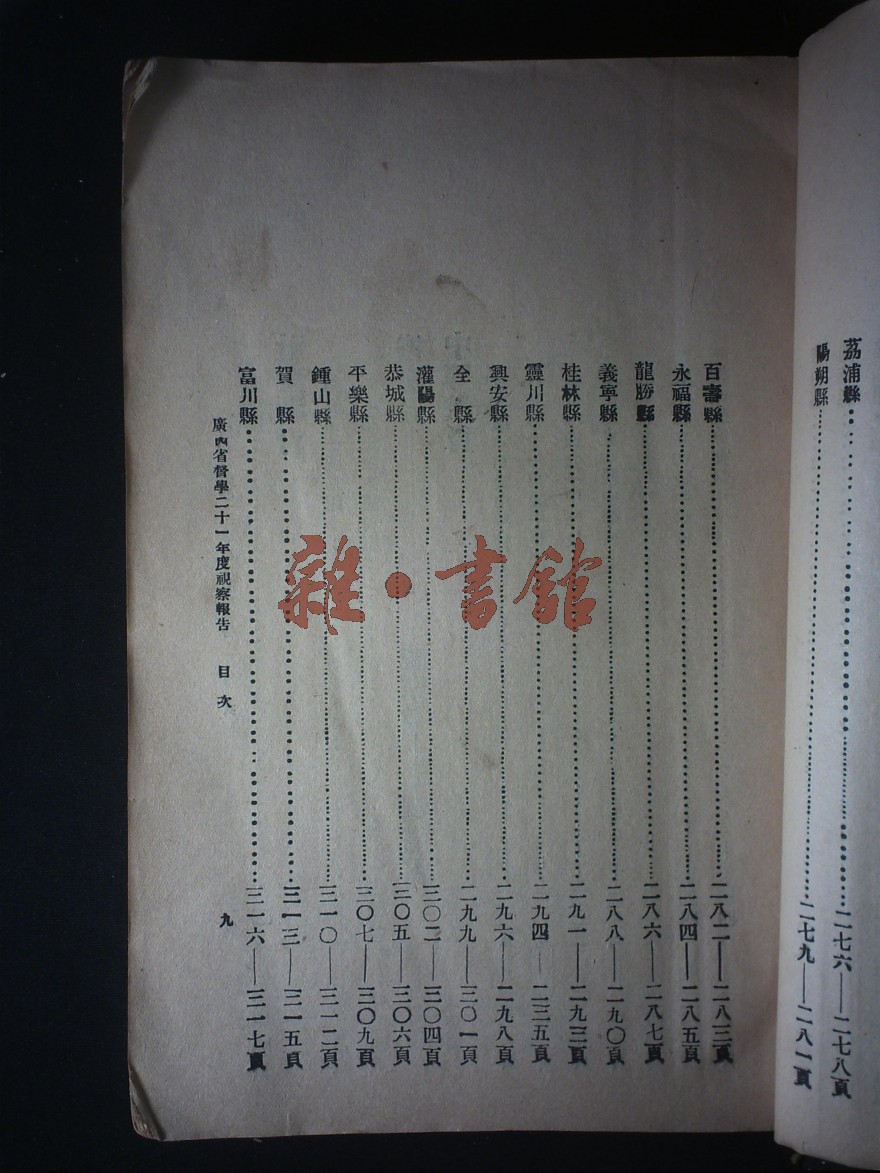 荔浦縣……二七六——二七八頁
陽朔縣……二七九——二八一頁
百壽縣……二八二——二八三頁
永福縣……二八四——二八五頁
龍勝縣……二八六——二八七頁
義寧縣……二八八——二九〇頁
桂林縣……二九一——二九三頁
靈川縣……二九四——二三五頁
興安縣……二九六——二九八頁
全縣……二九九——三〇一頁
灌陽縣……三〇二——三〇四頁
恭城縣……三〇五——三〇六頁
平樂縣……三〇七——三〇九頁
鍾山縣……三一〇——三一二頁
賀縣……三一三——三一五頁
富川縣……三一六——三一七頁
廣西省督學二十一年度視察報告 目次
九
雜·書館